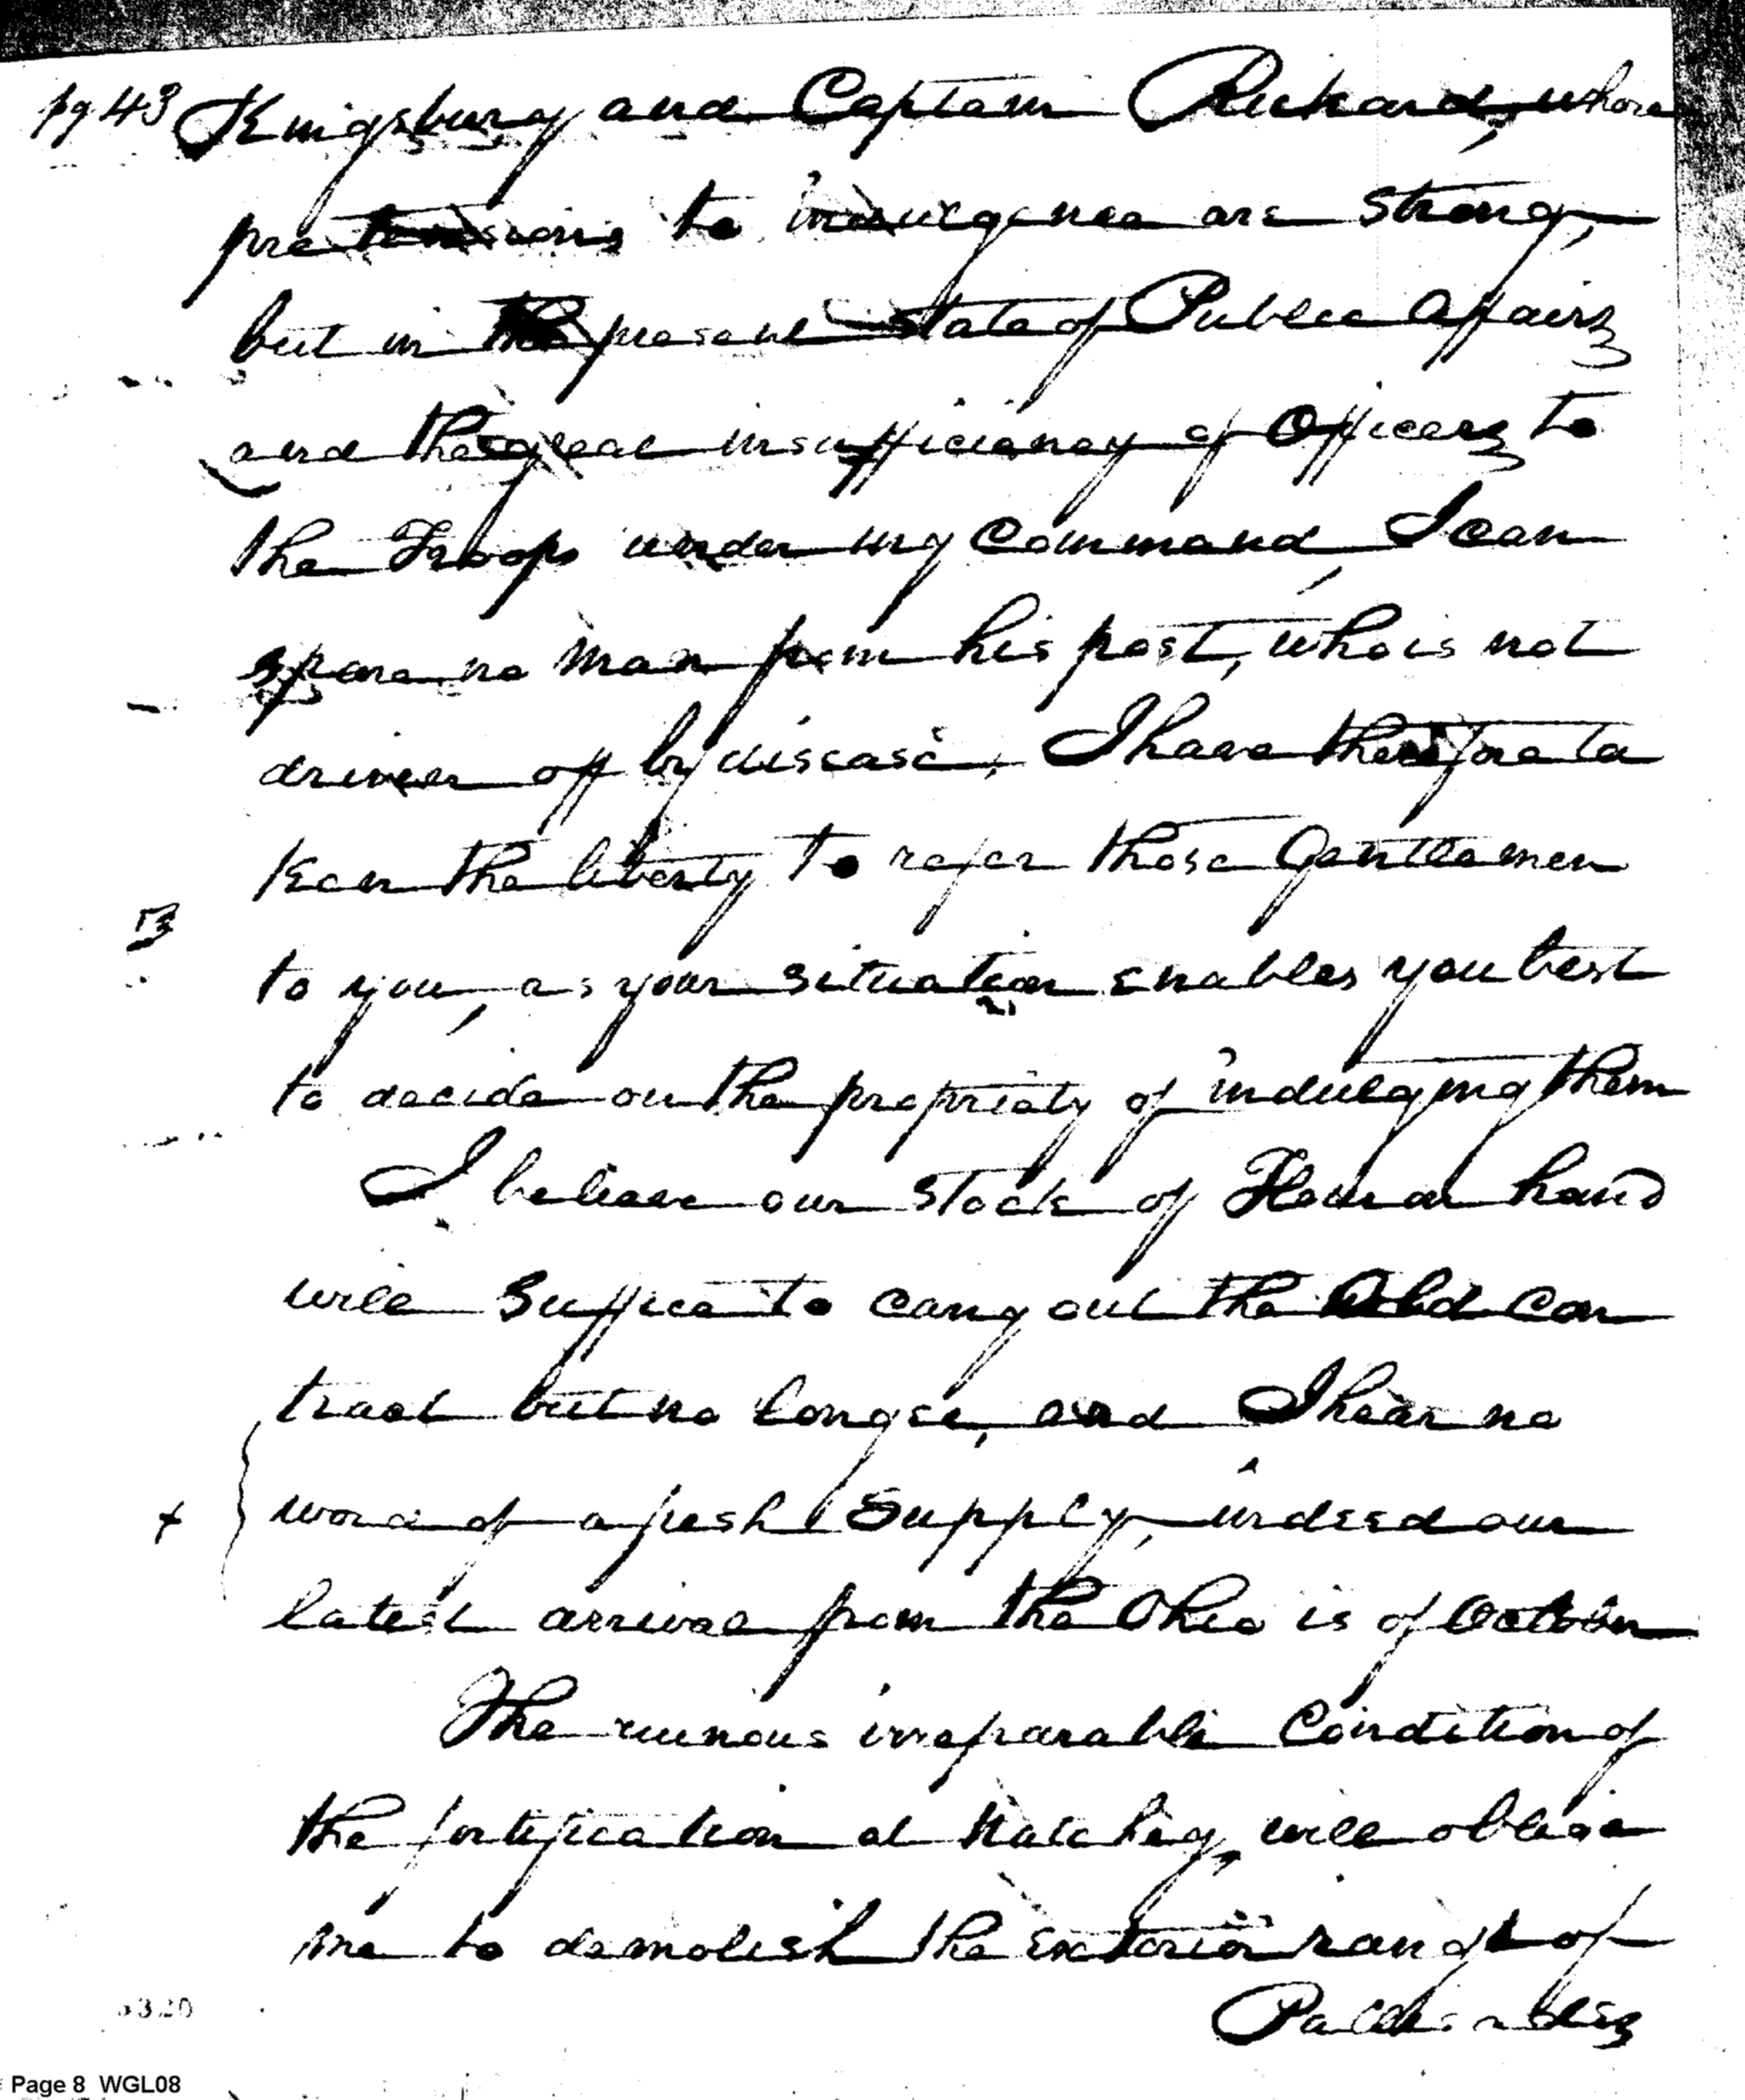 pg 43 Kingsbury and Captain Rickard, whose
pretensions to indulgence are strong,
but in the present state of Public Affairs
and the great insufficiency of Officers to
the Troops under my Command, I can
spare no man from his post, who is not
driven off by disease, I have therefore ta
ken the liberty to refer those Gentlemen
to you, as your situation enables you best
to decide on the propriety of indulging them
I believe our stock of Flour on hand
will suffice to carry out the Old Con
tract but no longer, and I hear no
+ word of a fresh Supply, indeed our
latest arrival from the Ohio is of October
The ruinous irreparable Condition of
the fortification at Natchez, will oblige
me to demolish the exterior range of
Pallisades
Page 8 WGL08